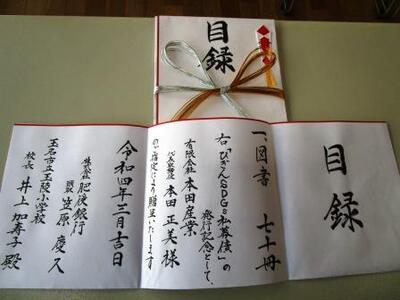 目録
目録
一、図書 七十冊
右「ひぎんSDGs私募債」の
発行記念として、
有限会社 本田産業
代表取締役 本田正美様
のご指定により贈呈いたします
令和四年二月吉日
株式会社 肥後銀行
頭取 笠原慶久
玉名市立玉陵小学校
校長 井上加寿子殿